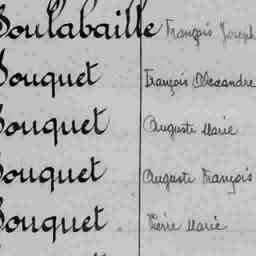 Soulabaille François Joseph
Bouquet François Alexandre
Bouquet Auguste Marie
Bouquet Auguste François
Bouquet Pierre Marie